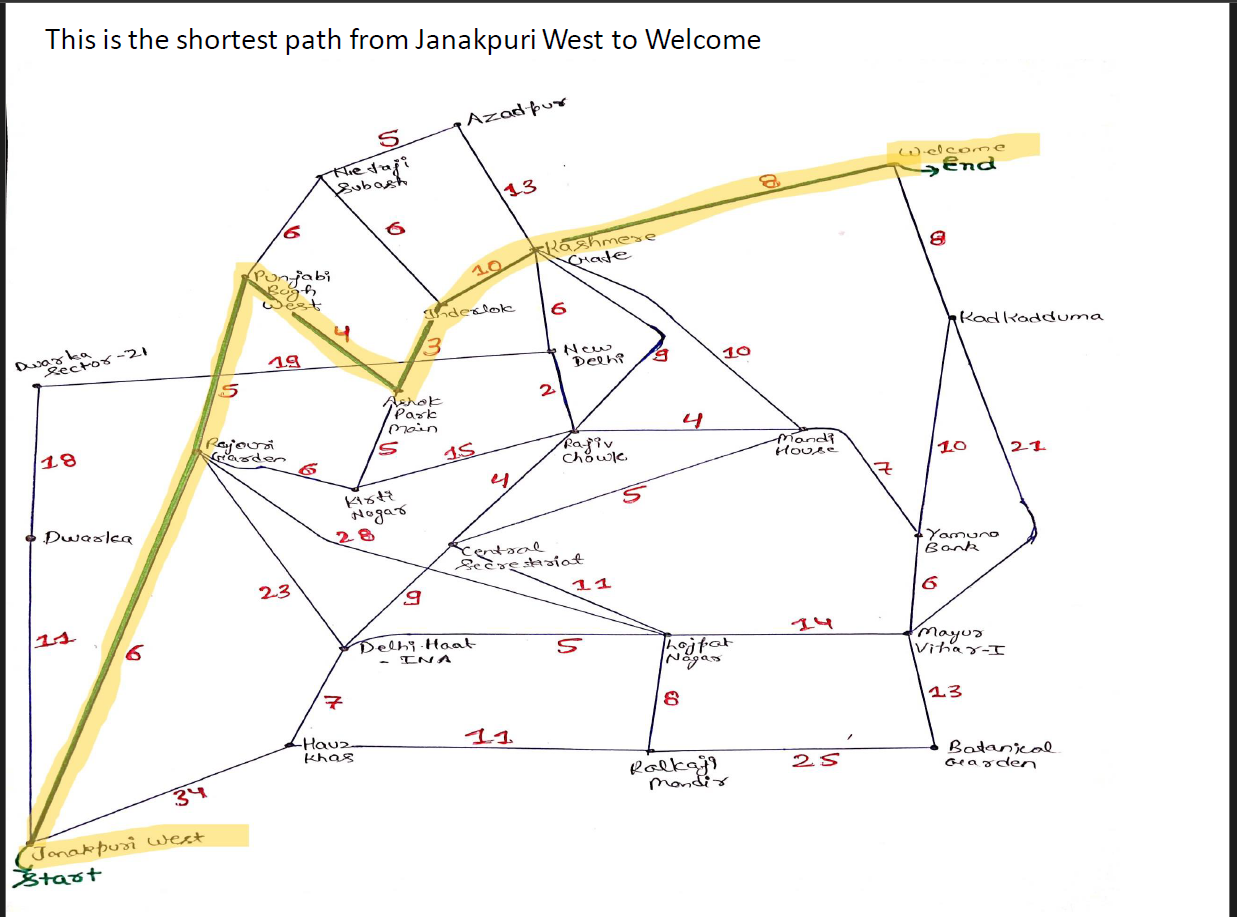 This is the shortest path from Janakpuri West to Welcome
Azadpur
5
Netaji
Subash
13
Welcome
→ End
8
6
6
Kashmere
Gate
8
10
Punjabi
Bagh
West
Inderlok
6
Kadkadduma
4
3
New
Delhi
Dwarka
Sector-21
19
9
10
5
2
Ashok
Park
Main
4
Rajouri
Garden
5
15
Rajiv
Chowk
Mandi
House
10
21
18
6
4
7
Kirti
Nagar
5
Dwarka
28
Yamuna
Bank
Central
Secretariat
23
9
11
6
11
6
14
Delhi Haat
- INA
5
Lajpat
Nagar
Mayur
Vihar-I
7
8
13
Hauz
Khas
11
25
Batanical
Garden
Kalkaji
Mandir
34
Janakpuri West
Start